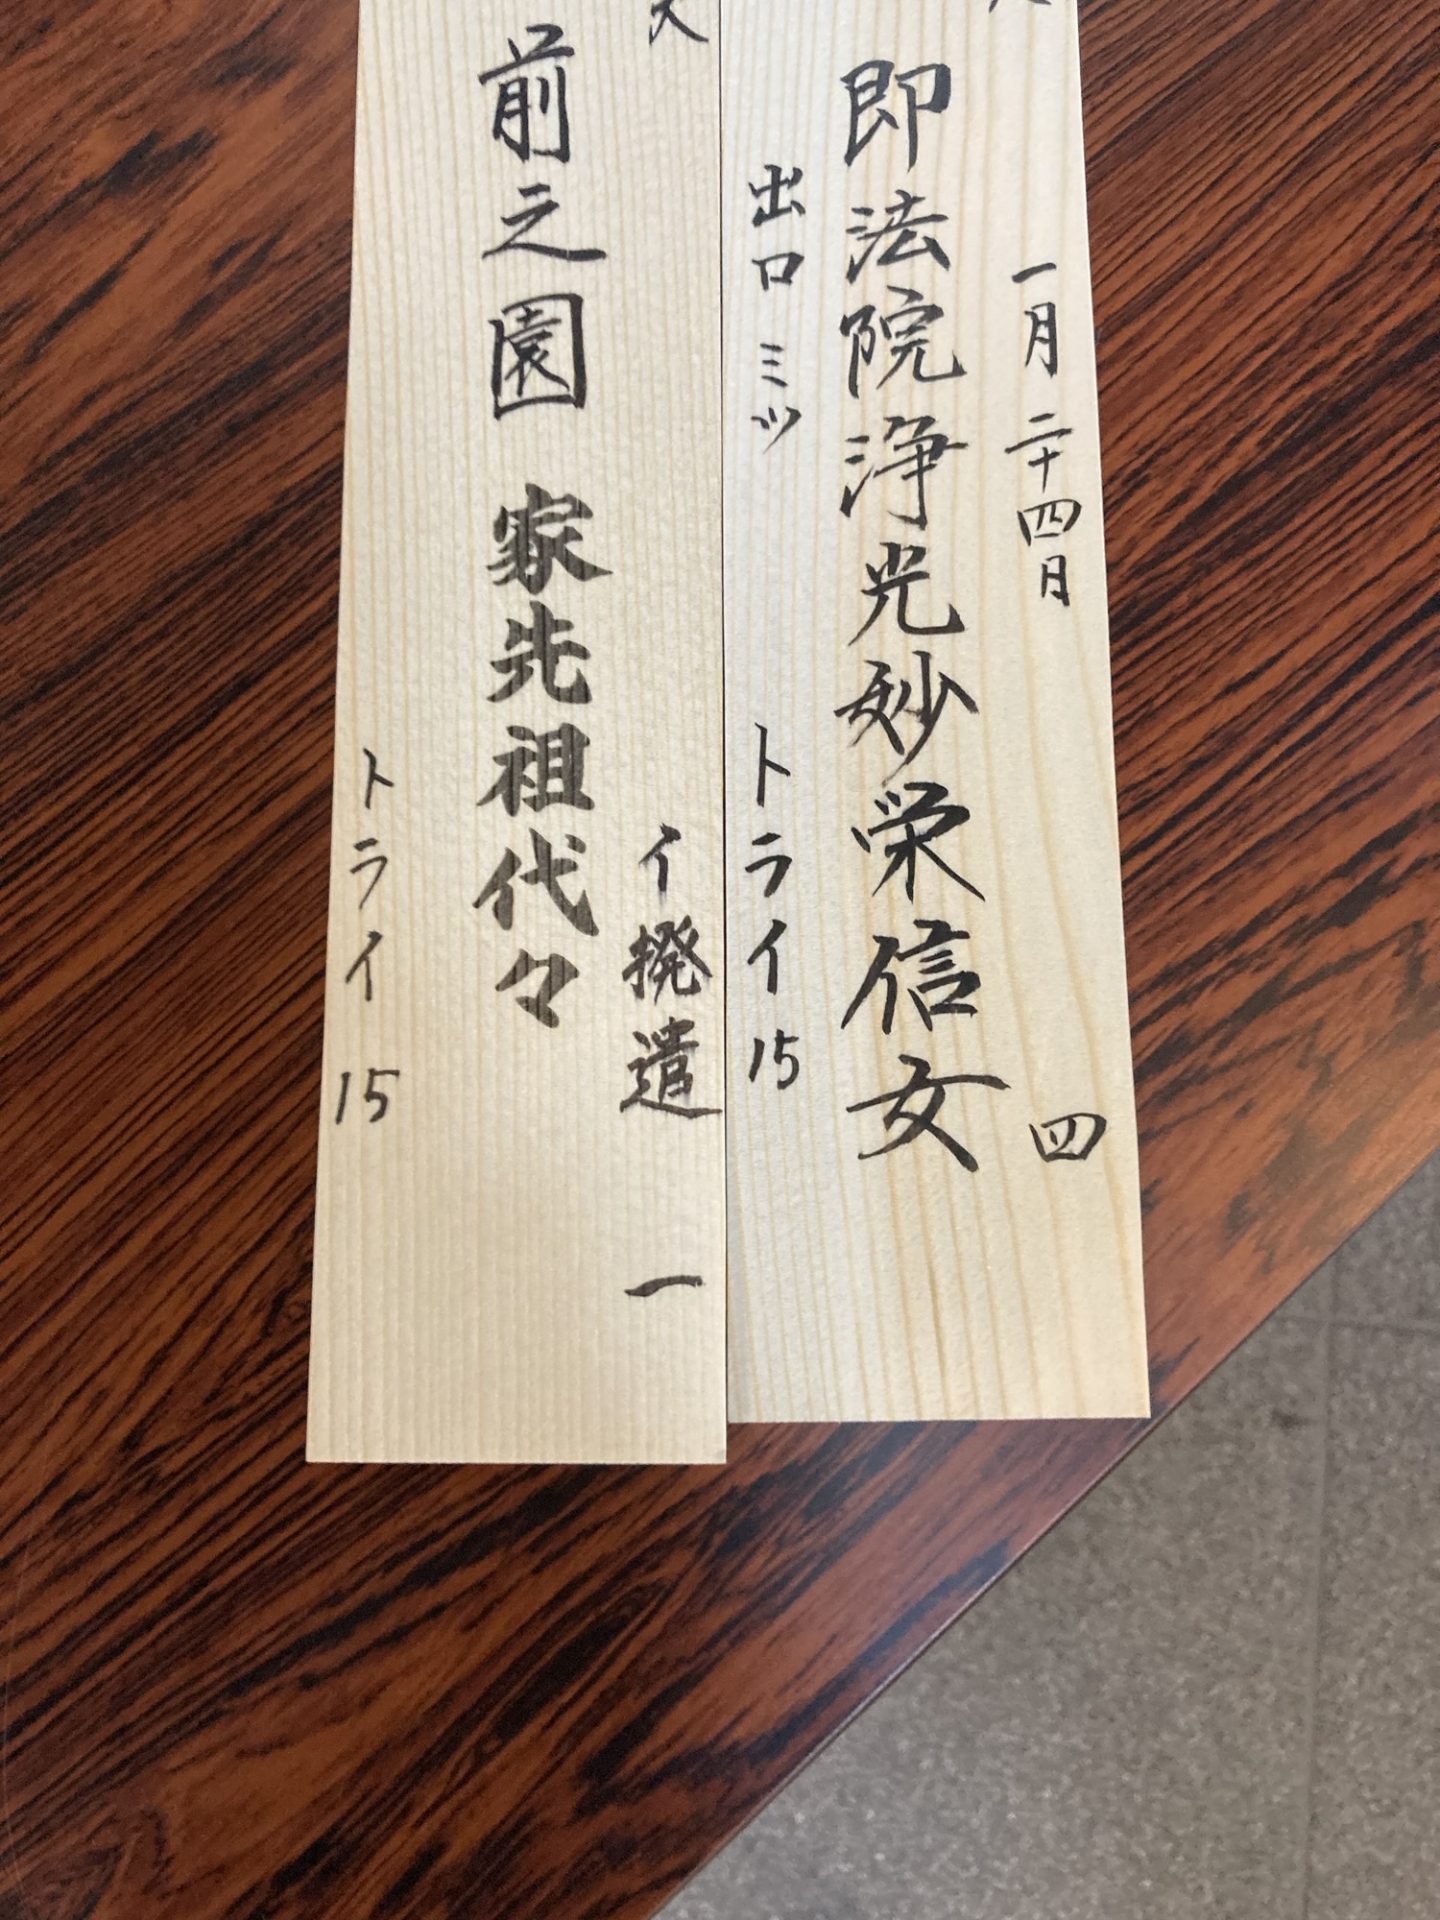 一月二十四日 四
即法院浄光妙栄信女
出口ミツ トライ15
イ撥遣 一
前之園 家先祖代々
トライ15